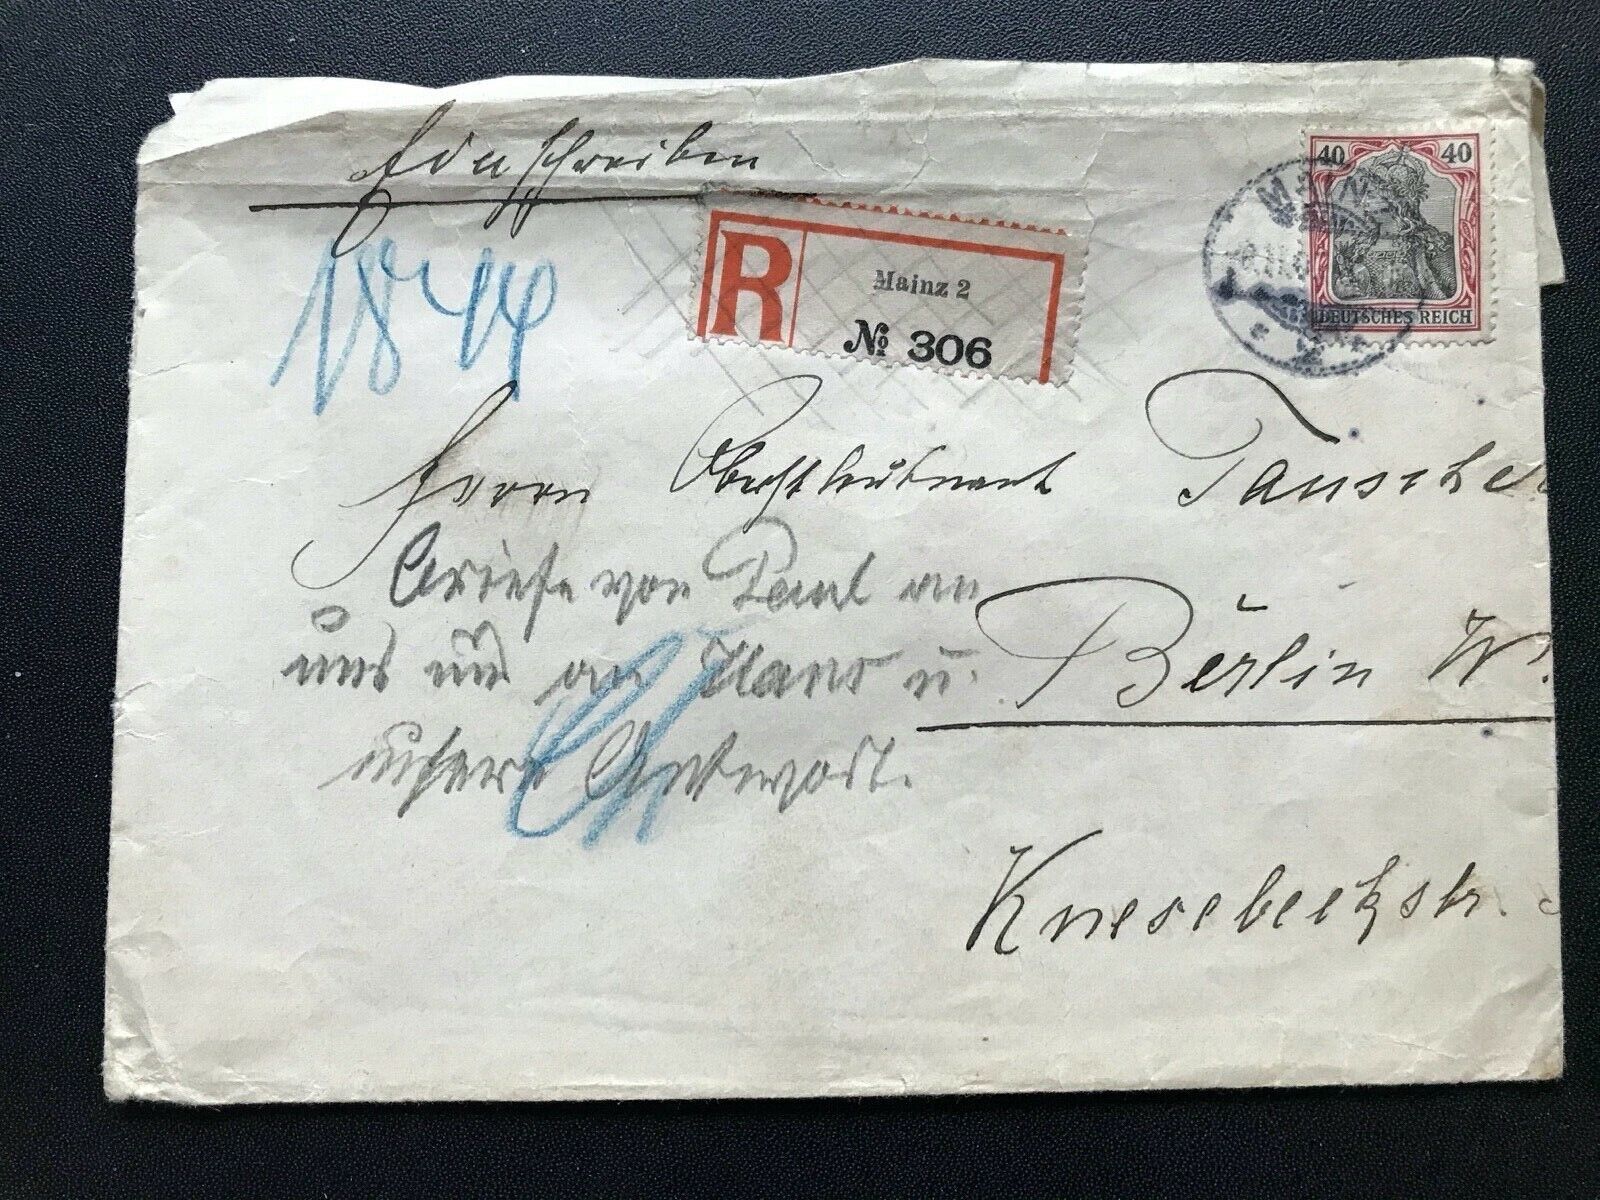 Einschreiben
40 40
MAINZ
DEUTSCHES REICH
R
Mainz 2
№ 306
Herrn Oberstleutnant Tausche
Briefe von Paul an
uns und an Hans u.
unsere Antwort.
Berlin W.
Knesebeckstr.